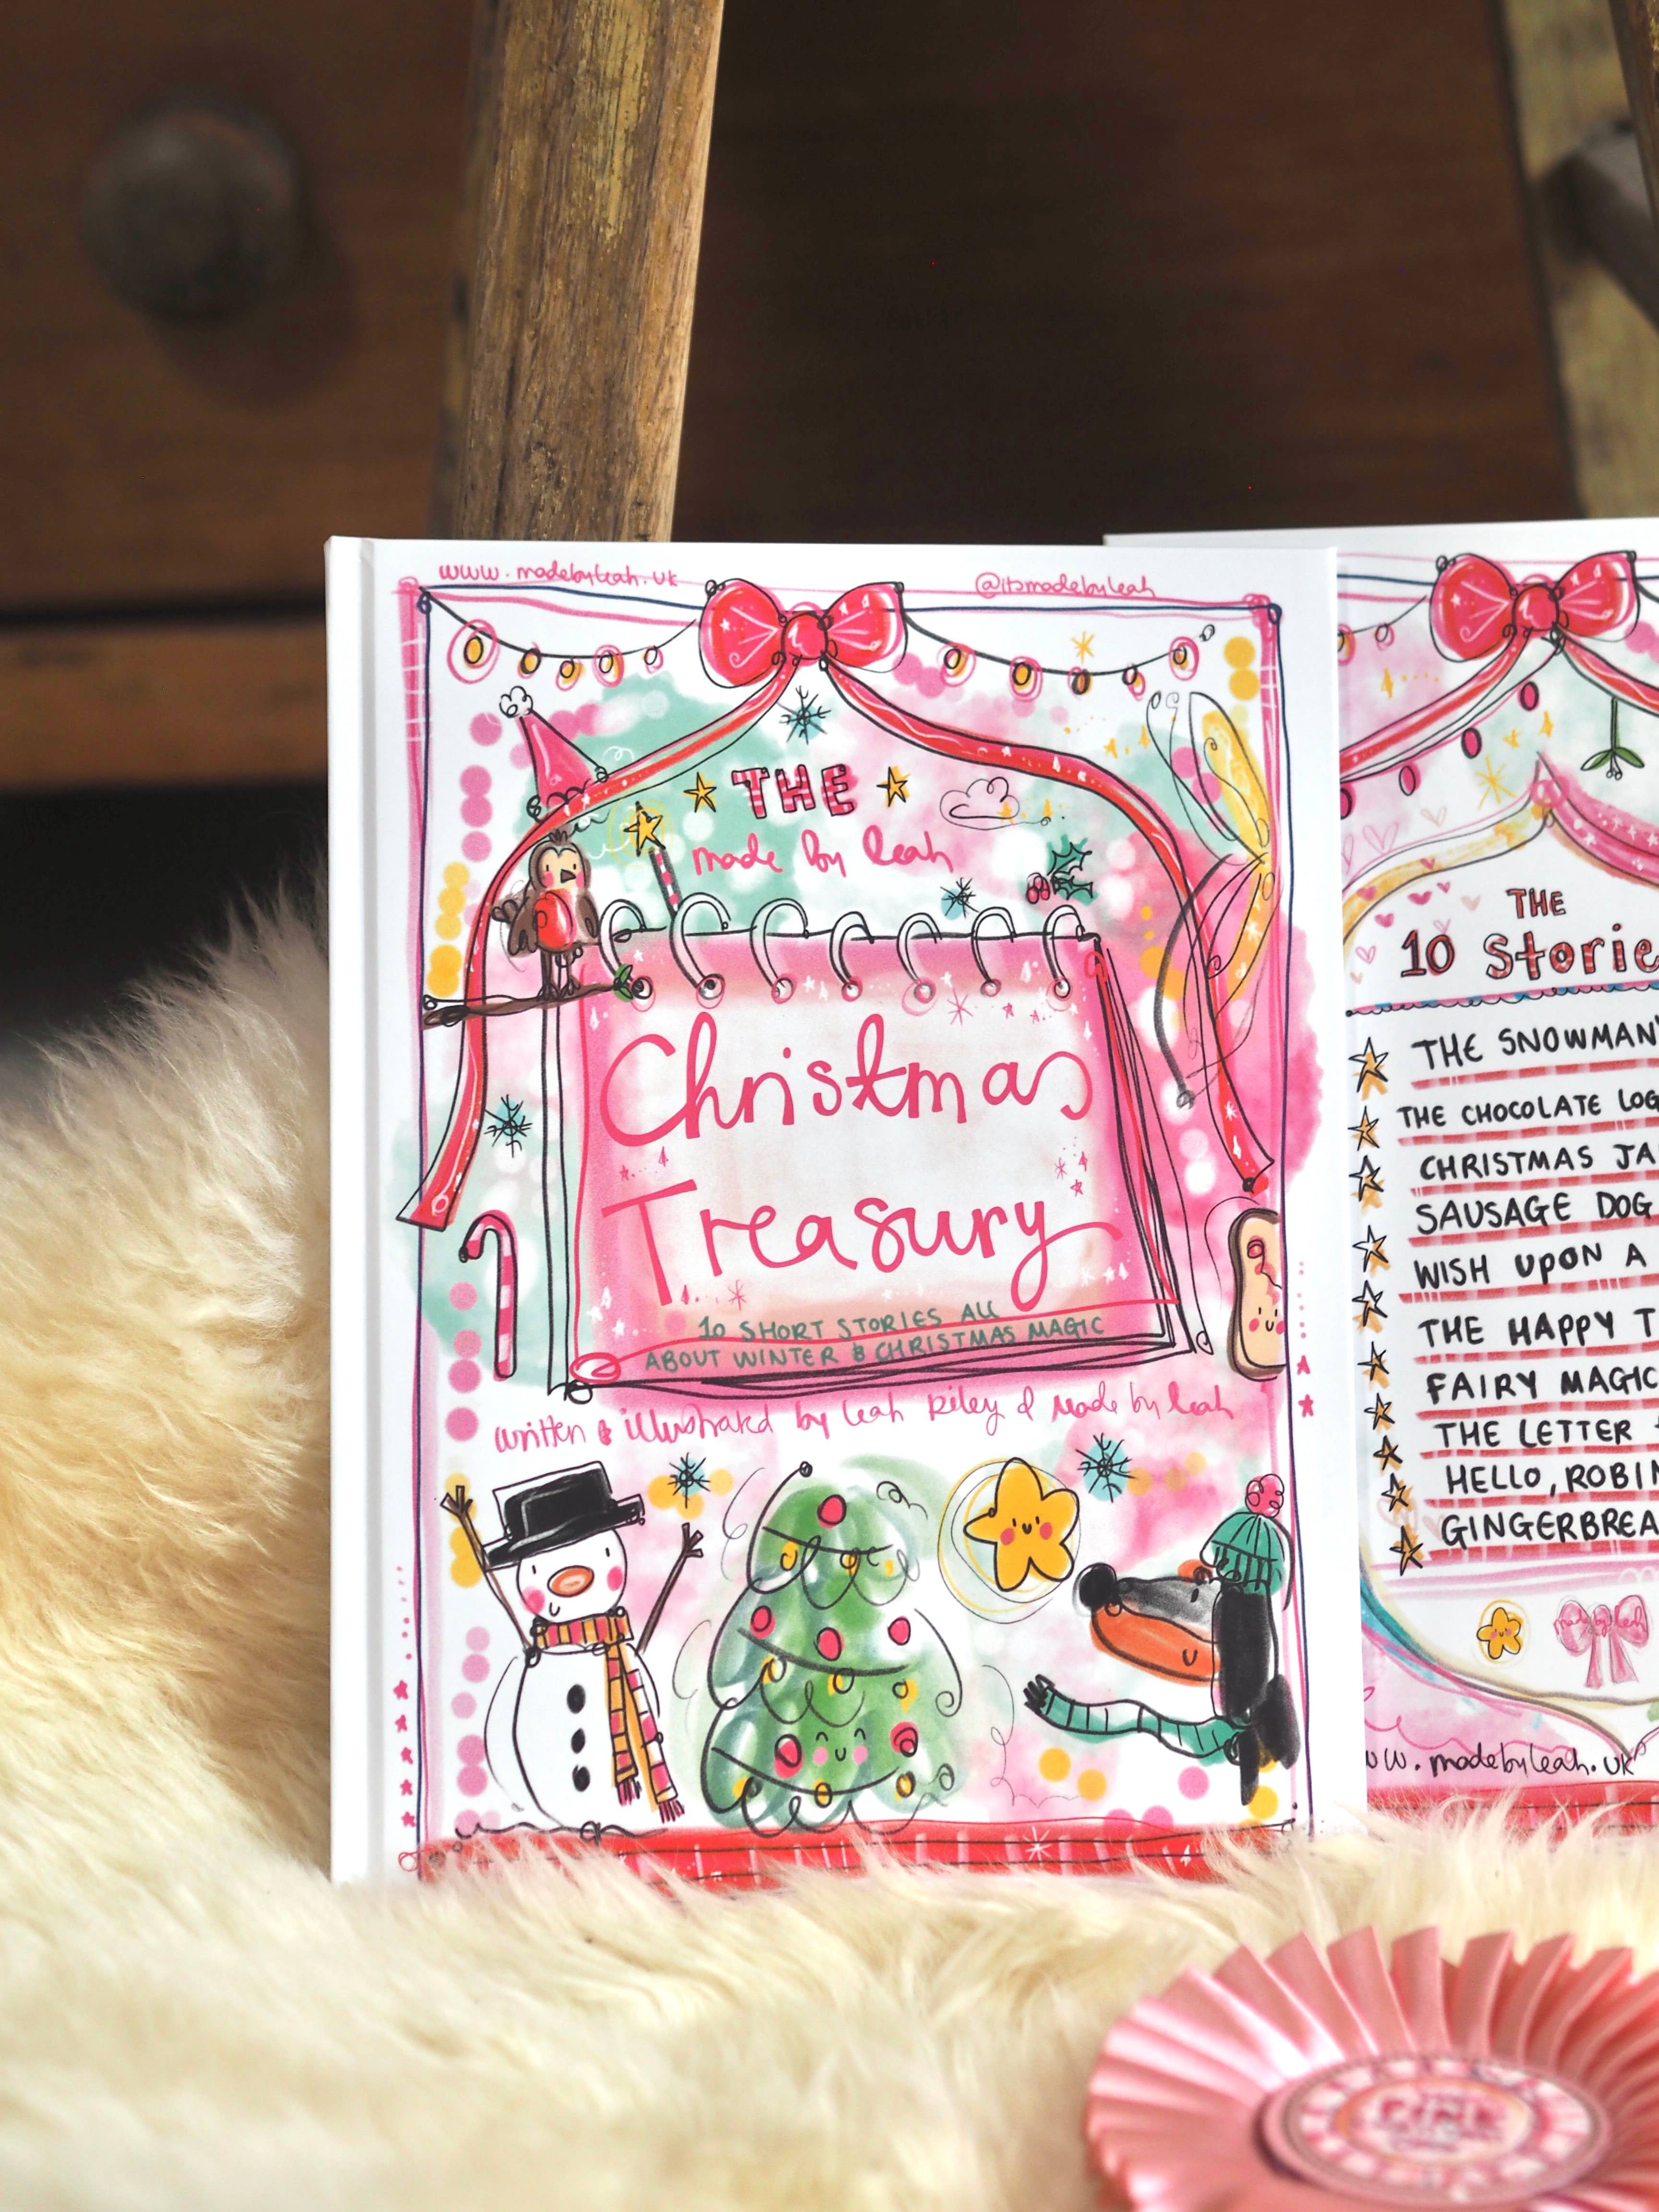 www.madebyleah.uk
@itsmadebyleah
THE
made by leah
Christmas
Treasury
10 SHORT STORIES ALL
ABOUT WINTER & CHRISTMAS MAGIC
written & illustrated by Leah Riley & Made by Leah
THE
10 Storie
THE SNOWMAN'
THE CHOCOLATE LOG
CHRISTMAS JA
SAUSAGE DOG
WISH UPON A
THE HAPPY T
FAIRY MAGIC
THE LETTER
HELLO, ROBIN
GINGERBREA
made by leah
ww.madebyleah.uk
PINK